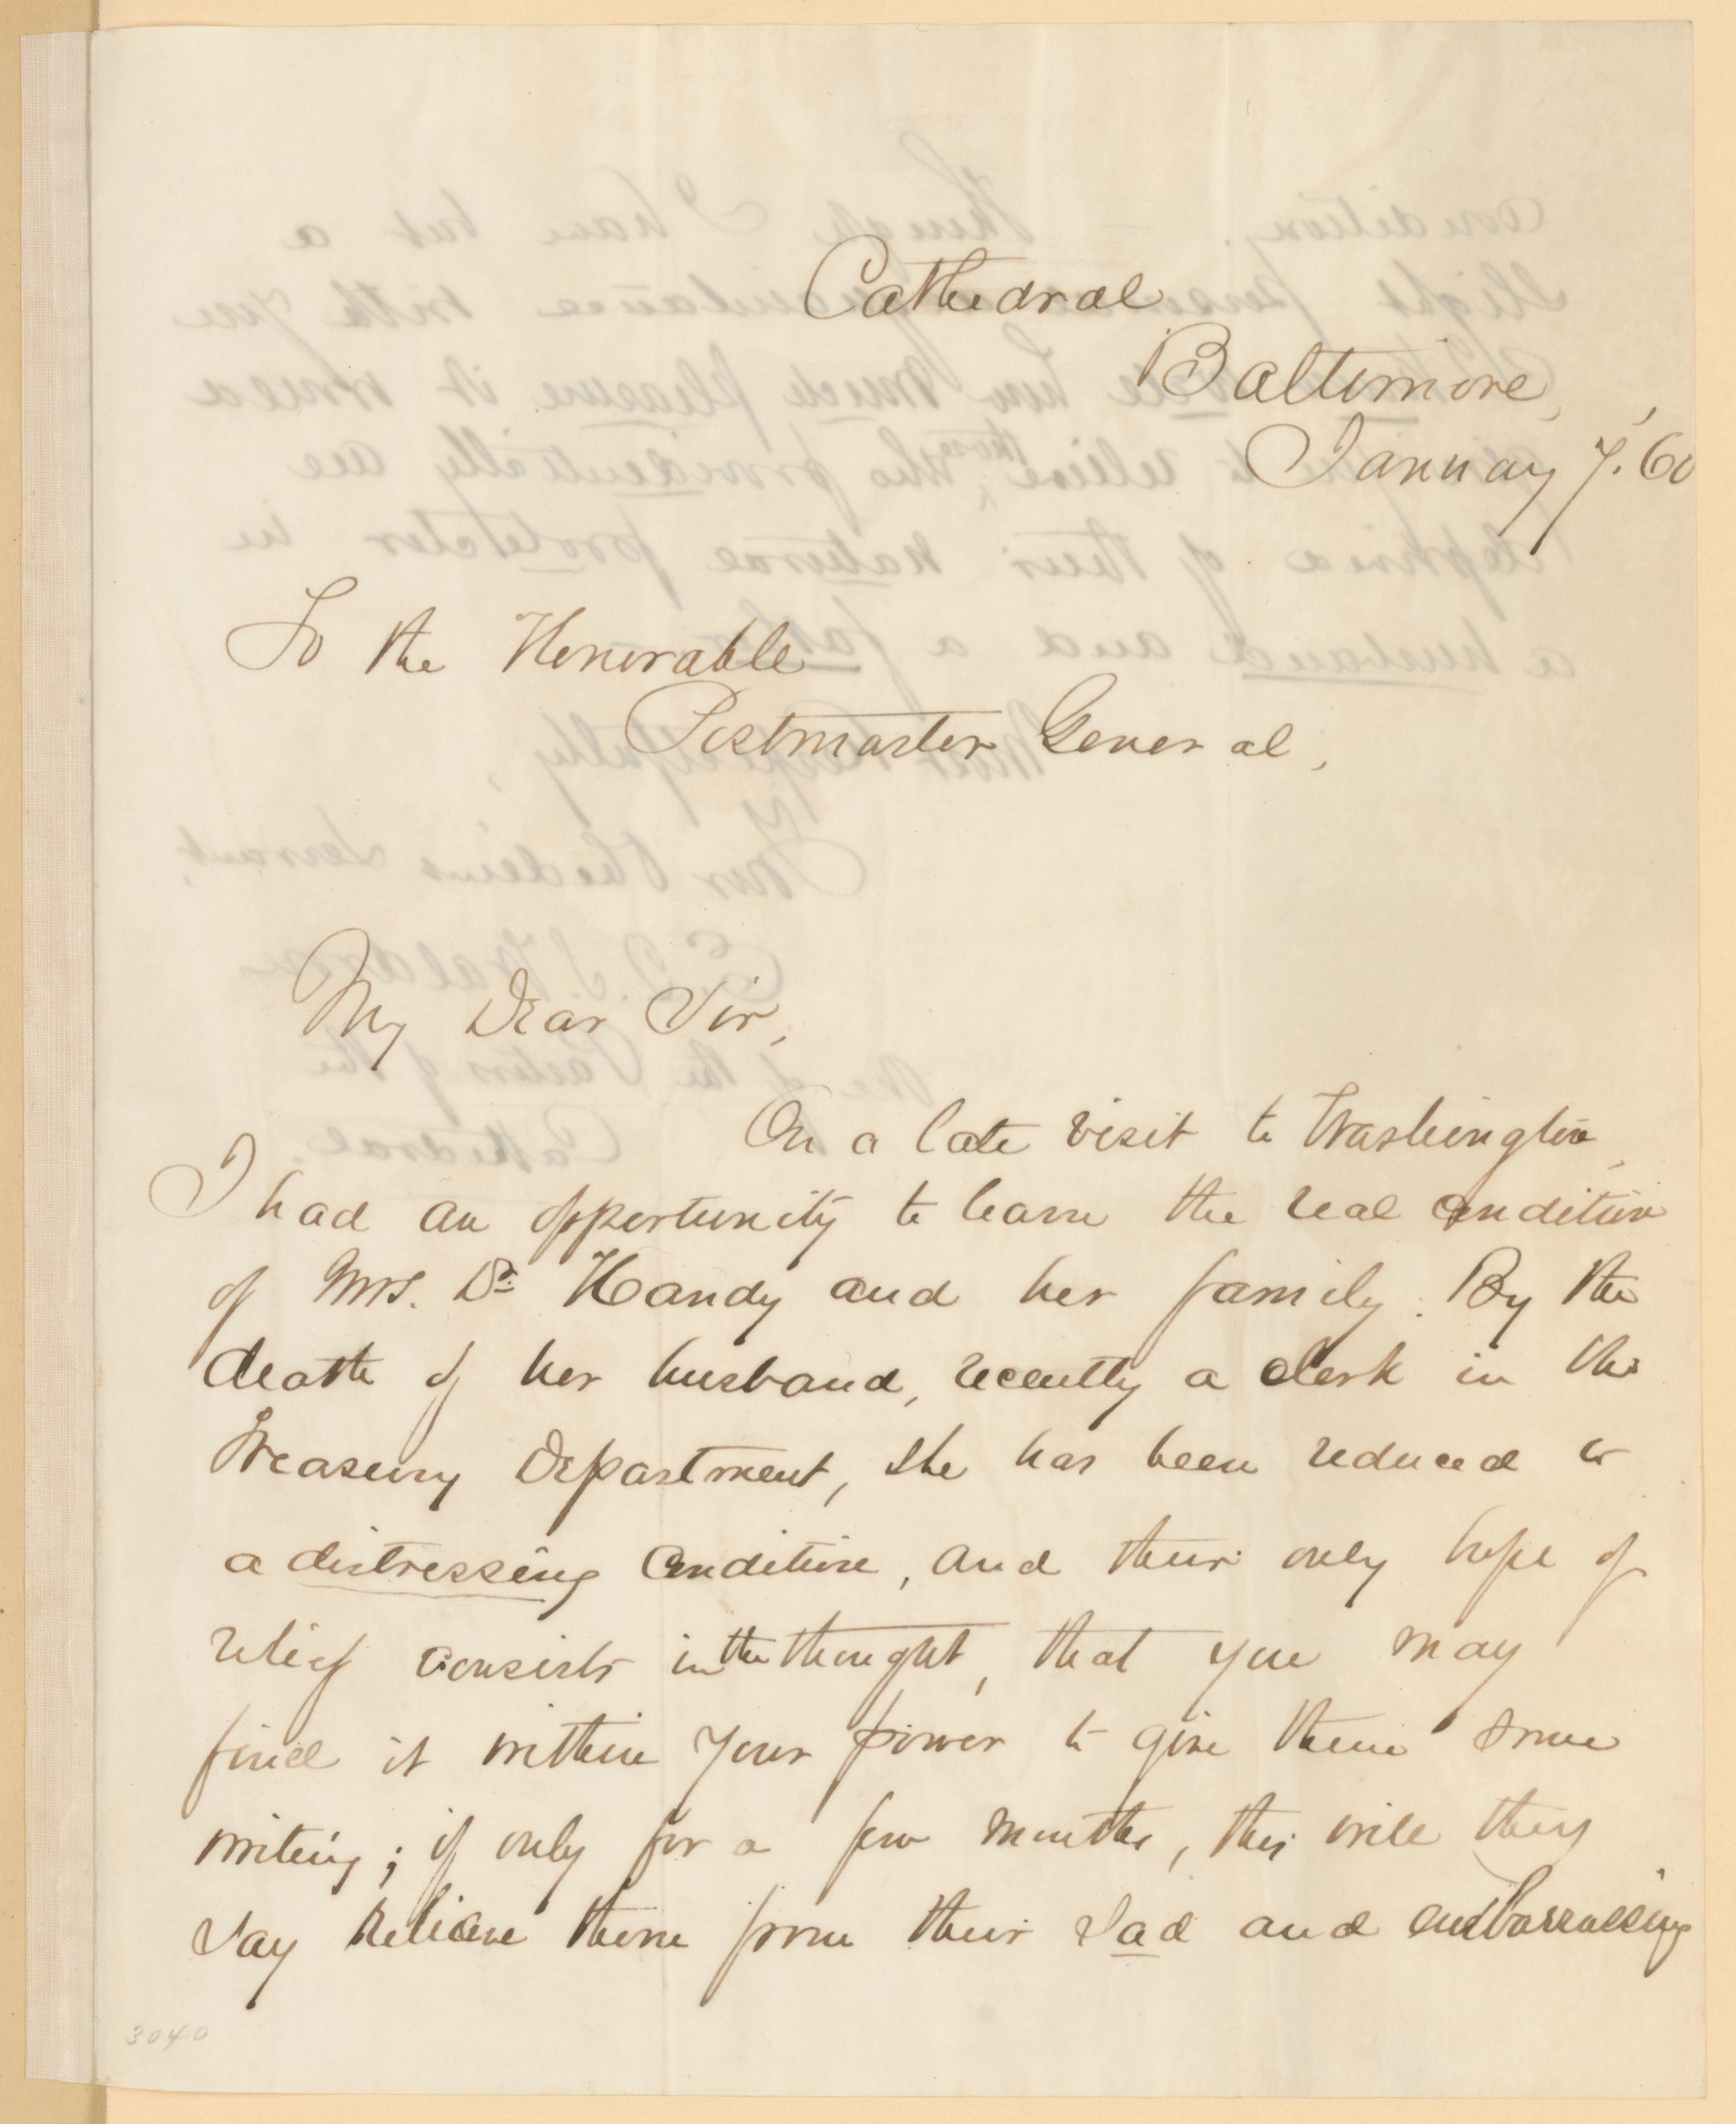 Cathedral
Baltimore,
January 7. 60
To the Honorable
Postmaster General,
My Dear Sir,
On a late visit to Washington,
I had an opportunity to learn the real condition
of Mrs. Dr. Handy and her family. By the
death of her husband, recently a clerk in the
Treasury Department, she has been reduced to
a distressing condition, and their only hope of
relief consists in the thought, that you may
find it within your power to give them some
writing; if only for a few months, this will they
say relieve them from their sad and embarrassing
3040